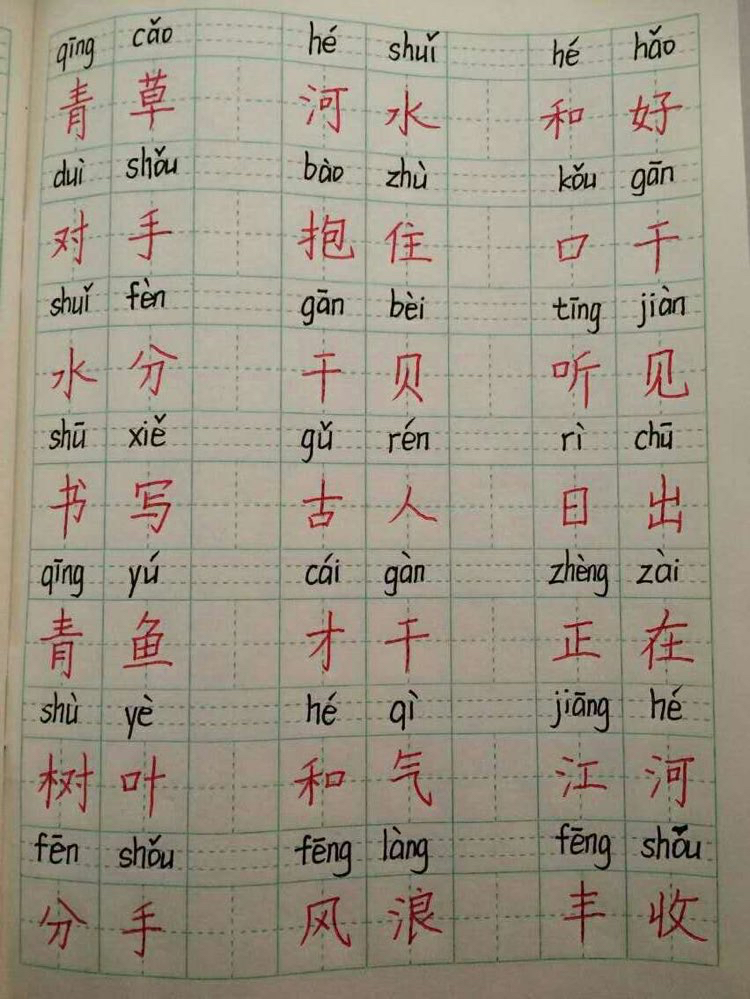 qīng cǎo hé shuǐ hé hǎo
青草 河水 和好
duì shǒu bào zhù kǒu gān
对手 抱住 口干
shuǐ fèn gān bèi tīng jiàn
水分 干贝 听见
shū xiě gǔ rén rì chū
书写 古人 日出
qīng yú cái gàn zhèng zài
青鱼 才干 正在
shù yè hé qì jiāng hé
树叶 和气 江河
fēn shǒu fēng làng fēng shǒu
分手 风浪 丰收